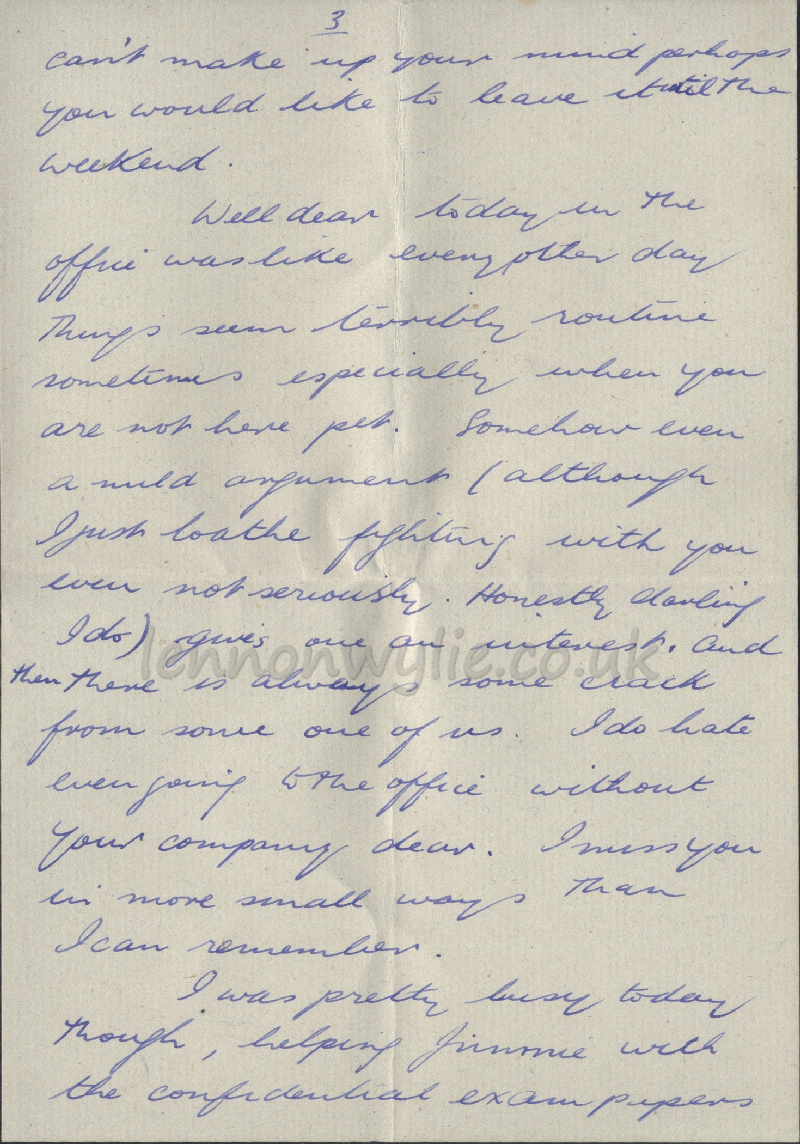 3
can't make up your mind perhaps
you would like to leave it until the
weekend.
Well dear today in the
office was like every other day
things seem terribly routine
sometimes especially when you
are not here pet. Somehow even
a mild argument (although
I just loathe fighting with you
even not seriously. Honestly darling
I do) gives one an interest. And
then there is always some crack
from some one of us. I do hate
even going to the office without
your company dear. I miss you
in more small ways than
I can remember.
I was pretty busy today
though, helping Jimmie with
the confidential exam papers
lennonwylie.co.uk